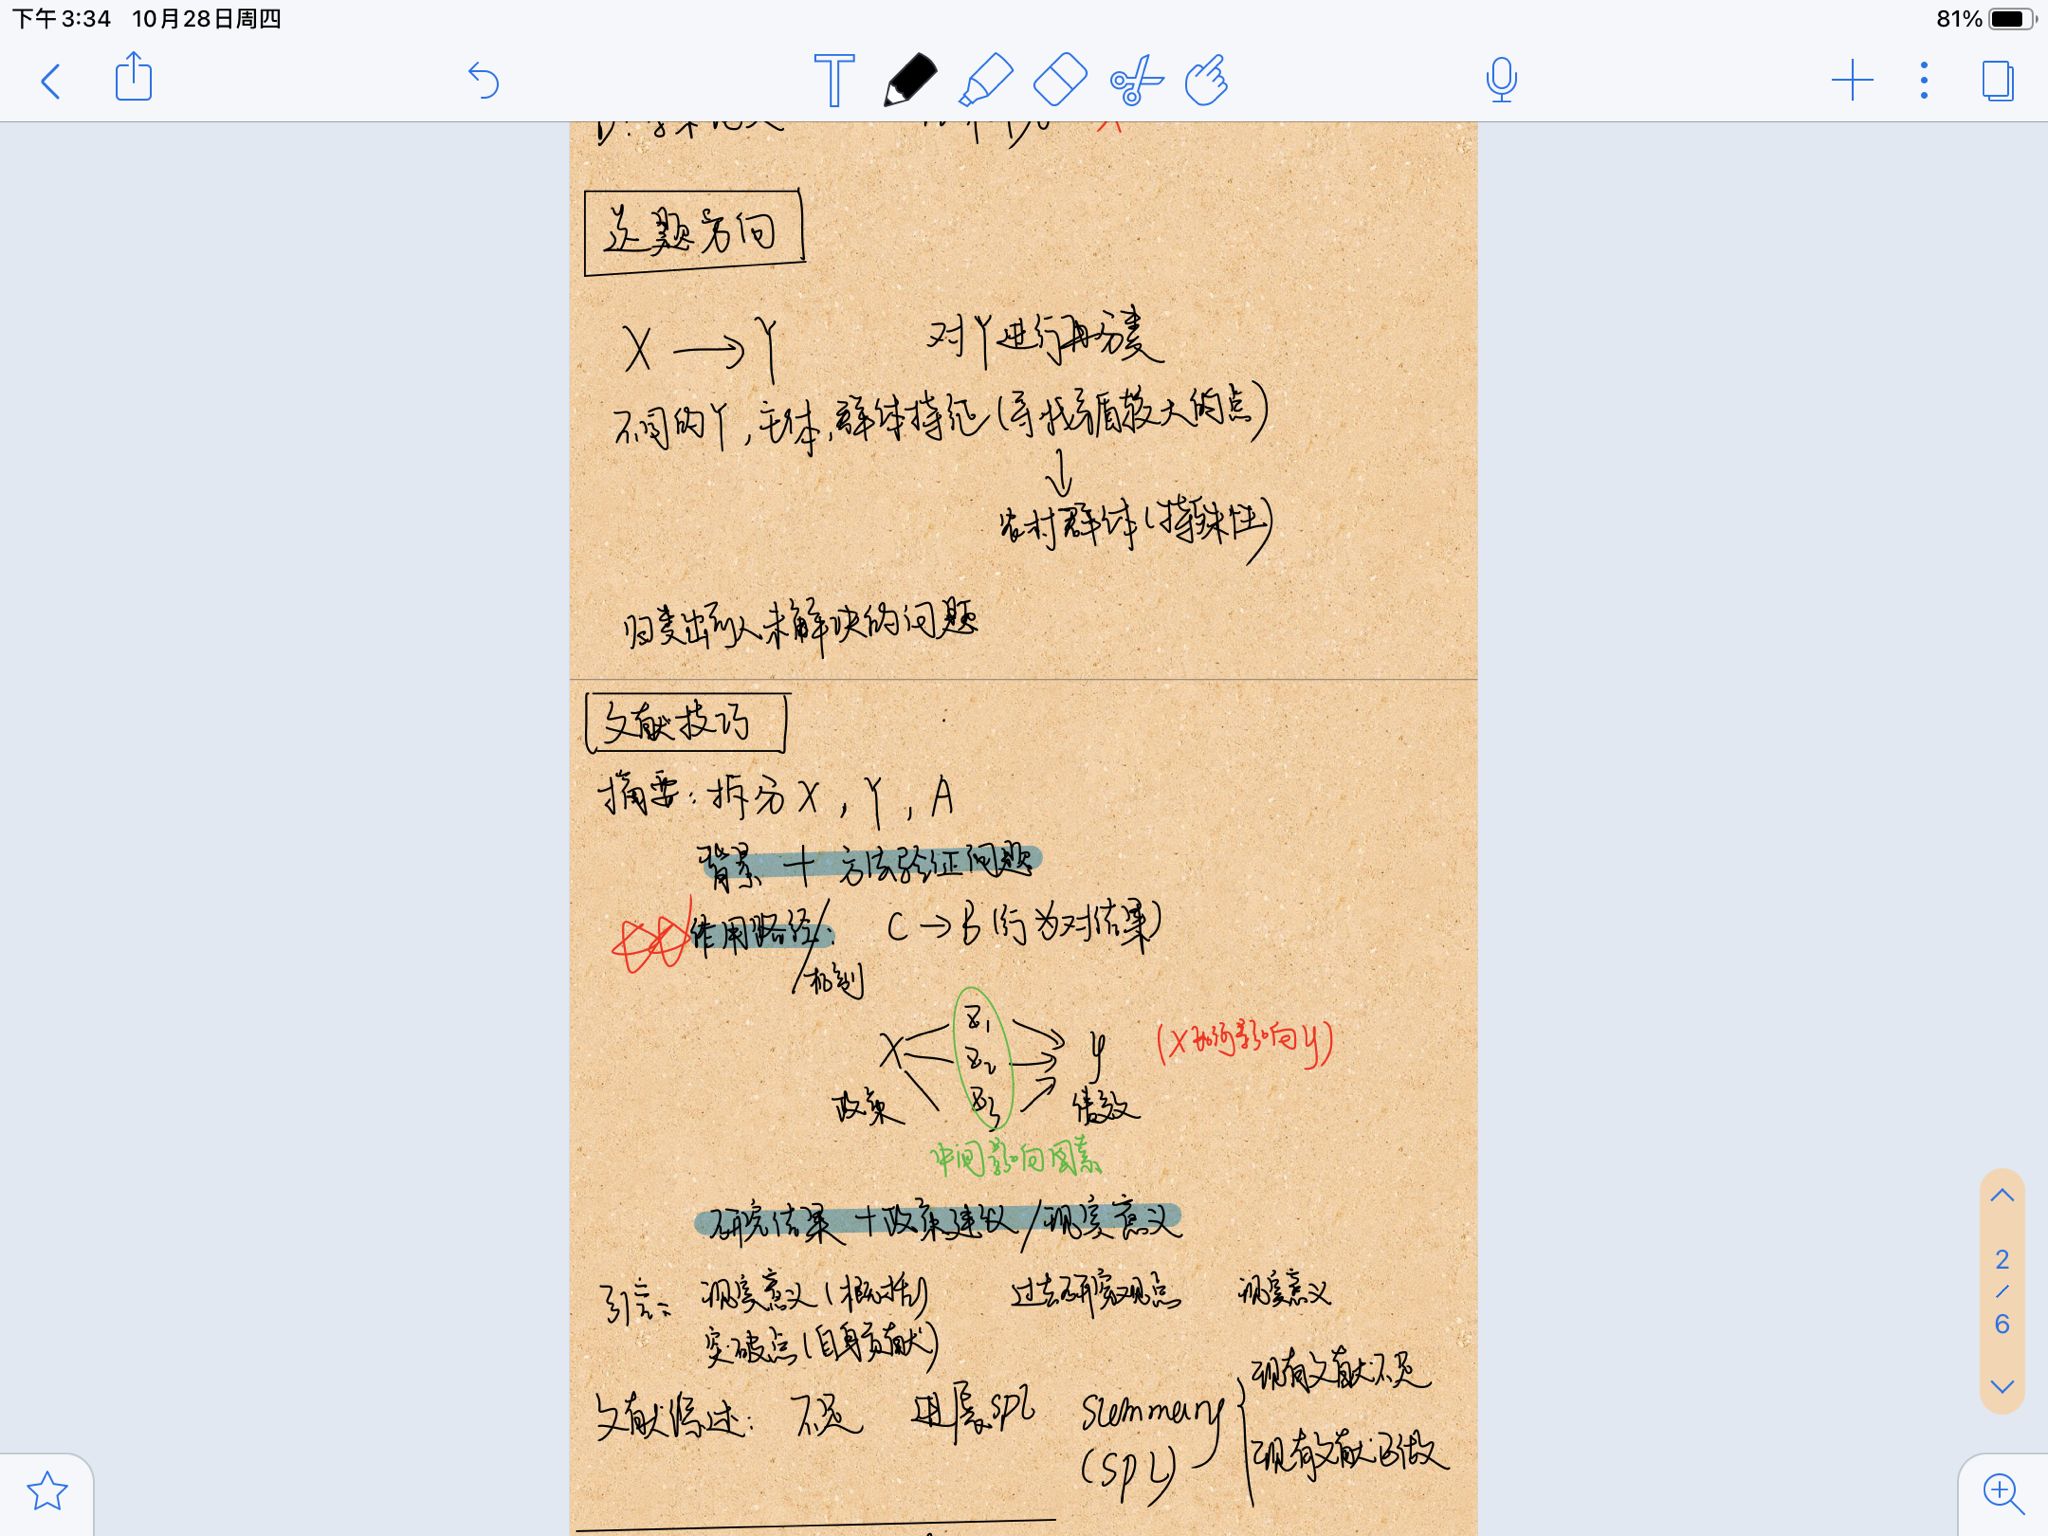 下午3:34 10月28日周四
81%
T
选题方向
X → Y 对Y进行再分类
不同的Y,主体,群体特征(寻找矛盾较大的点)
↓
农村群体(特殊性)
归类出前人未解决的问题
文献技巧
摘要:拆分X,Y,A
背景 + 方法验证问题
作用路径: C → B(行为对结果)
/机制
X Z1 Z2 Z3 y (X如何影响y)
政策 绩效
中间影响因素
研究结果 + 政策建议/现实意义
引言: 现实意义(概括) 过去研究观点 现实意义
突破点(自身贡献)
文献综述: 不足 进展SPL Summary (SPL)
现有文献不足
现有文献已做
2
/
6